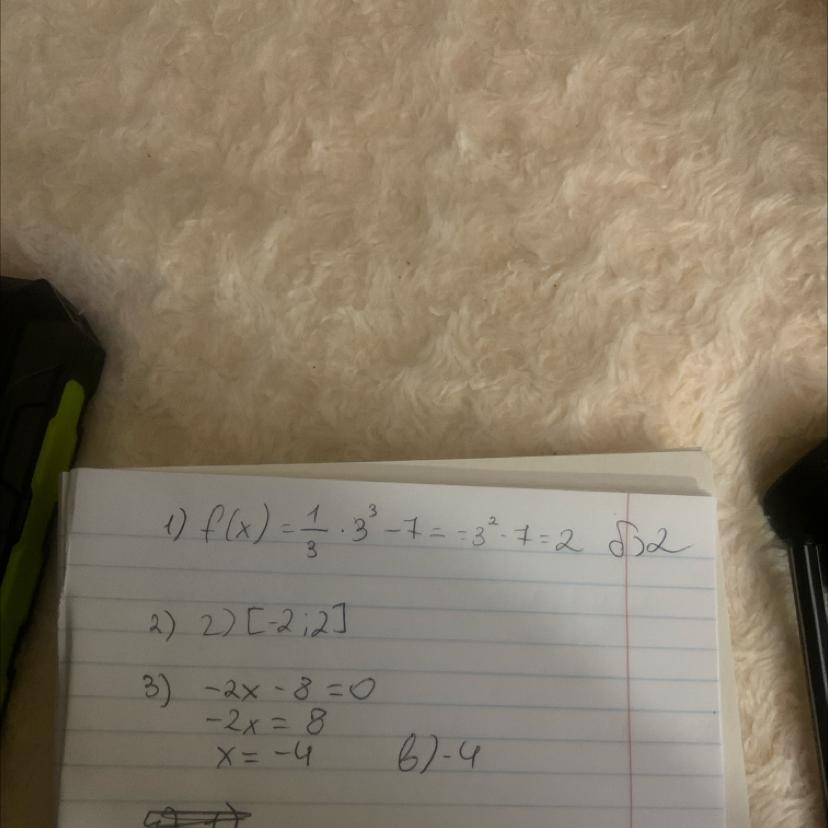 1) f(x) = 1/3 · 3³ - 7 = = 3² - 7 = 2 б) 2
2) г) [-2; 2]
3) -2x - 8 = 0
-2x = 8
x = -4 в) -4